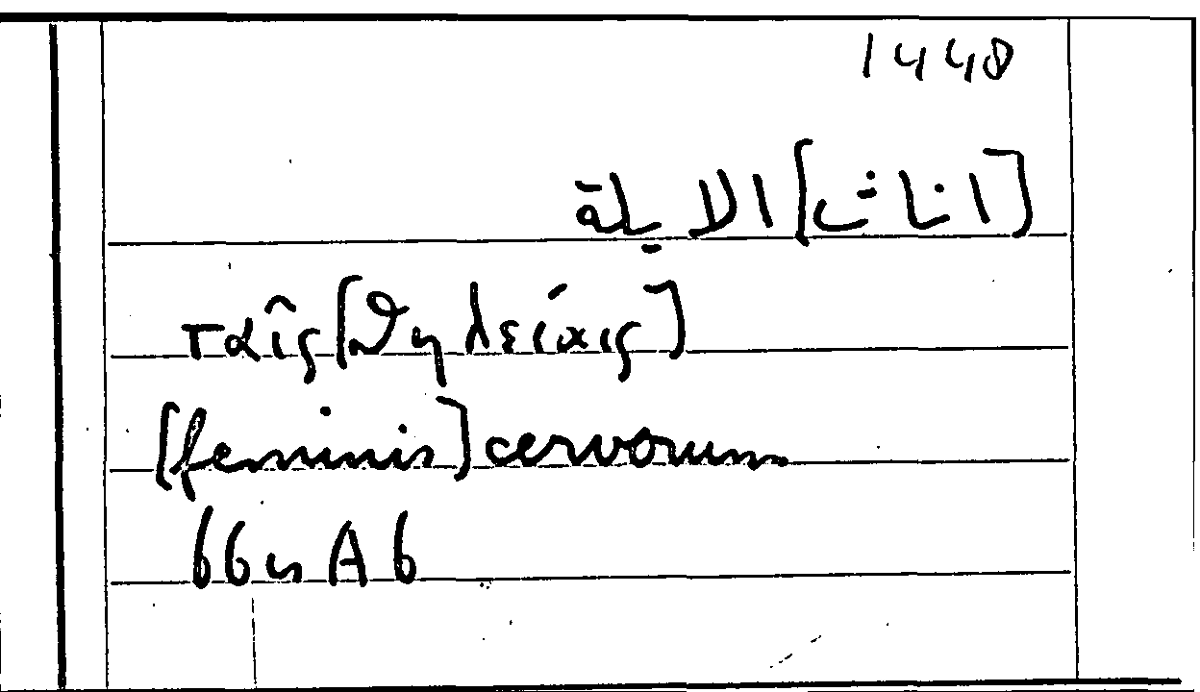 1448
[اناث] الايلة
ταῖς [θηλείαις]
[feminis] cervorum
664 A 6